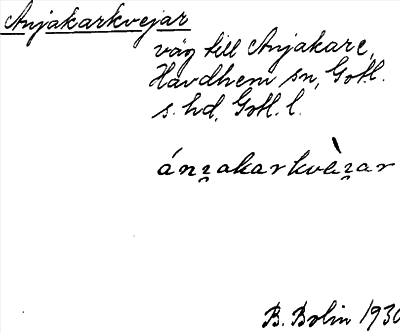 Anjakarkvejar
väg till Anjakare,
Havdhem sn, Gotl.
s. hd, Gotl. l.
ánʒakarkvὲʒar
B. Bolin 1930